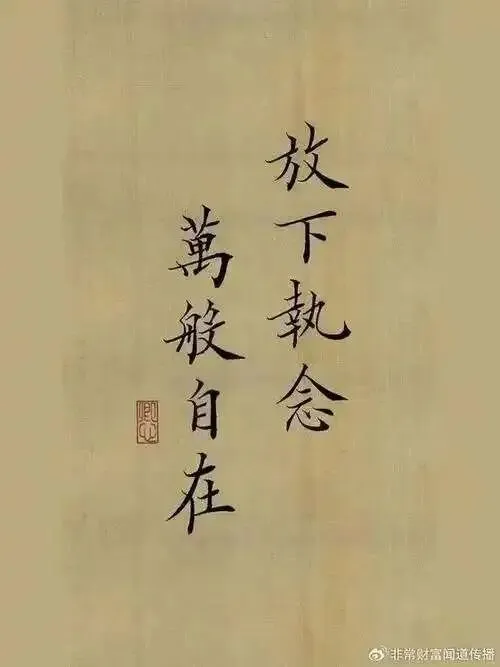 放下執念
萬般自在
非常财富闻道传播